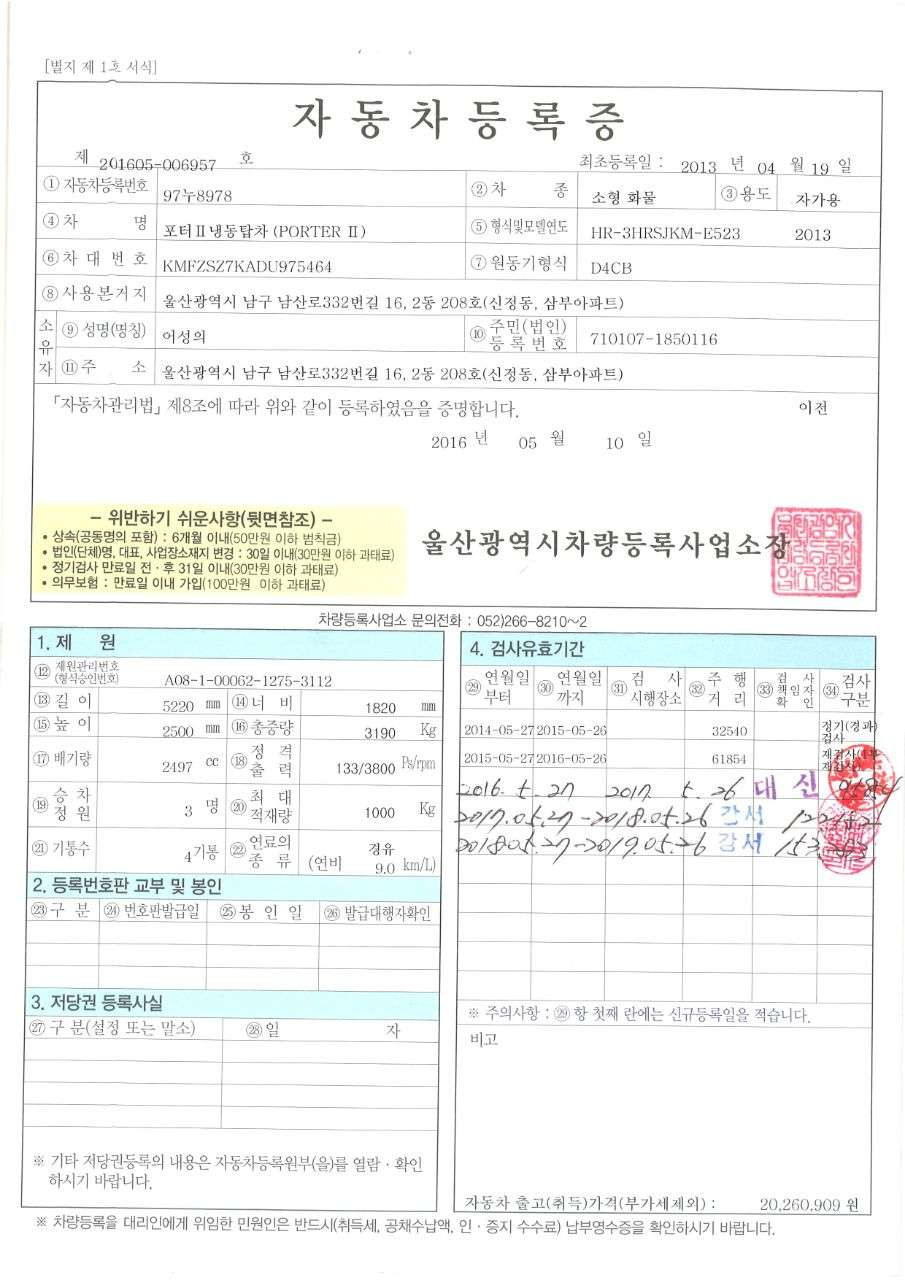 [별지 제 1호 서식]
자 동 차 등 록 증
제 201605-006957 호
최초등록일 : 2013 년 04 월 19 일
① 자동차등록번호 97누8978 ② 차 종 소형 화물 ③ 용도 자가용
④ 차 명 포터Ⅱ냉동탑차 (PORTER Ⅱ) ⑤ 형식및모델연도 HR-3HRSJKM-E523 2013
⑥ 차 대 번 호 KMFZSZ7KADU975464 ⑦ 원동기형식 D4CB
⑧ 사용본거지 울산광역시 남구 남산로332번길 16, 2동 208호(신정동, 삼부아파트)
소유자 ⑨ 성명(명칭) 어성의 ⑩ 주민(법인)등록번호 710107-1850116
⑪ 주 소 울산광역시 남구 남산로332번길 16, 2동 208호(신정동, 삼부아파트)
「자동차관리법」 제8조에 따라 위와 같이 등록하였음을 증명합니다. 이전
2016 년 05 월 10 일
– 위반하기 쉬운사항(뒷면참조) –
• 상속(공동명의 포함) : 6개월 이내(50만원 이하 범칙금)
• 법인(단체)명, 대표, 사업장소재지 변경 : 30일 이내(30만원 이하 과태료)
• 정기검사 만료일 전 · 후 31일 이내(30만원 이하 과태료)
• 의무보험 : 만료일 이내 가입(100만원 이하 과태료)
울산광역시차량등록사업소장
차량등록사업소 문의전화 : 052)266-8210~2
1. 제 원
⑫ 제원관리번호 (형식승인번호) A08-1-00062-1275-3112
⑬ 길 이 5220 mm ⑭ 너 비 1820 mm
⑮ 높 이 2500 mm ⑯ 총중량 3190 Kg
⑰ 배기량 2497 cc ⑱ 정 격 출 력 133/3800 Ps/rpm
⑲ 승 차 정 원 3 명 ⑳ 최 대 적재량 1000 Kg
㉑ 기통수 4기통 ㉒ 연료의 종 류 경유 (연비 9.0 km/L)
2. 등록번호판 교부 및 봉인
㉓ 구 분 ㉔ 번호판발급일 ㉕ 봉 인 일 ㉖ 발급대행자확인
3. 저당권 등록사실
㉗ 구 분(설정 또는 말소) ㉘ 일 자
※ 기타 저당권등록의 내용은 자동차등록원부(을)를 열람 · 확인
하시기 바랍니다.
4. 검사유효기간
㉙ 연월일 부터 ㉚ 연월일 까지 ㉛ 검 사 시행장소 ㉜ 주 행 거 리 ㉝ 검 사 책임자 확 인 ㉞ 검사 구분
2014-05-27 2015-05-26 32540 정기(경과)검사
2015-05-27 2016-05-26 61854
2016. 5. 27 2017. 5. 26 대 신
2017.05.27-2018.05.26 강서
2018.05.27-2019.05.26 강서
※ 주의사항 : ㉙ 항 첫째 란에는 신규등록일을 적습니다.
비고
자동차 출고(취득)가격(부가세제외) : 20,260,909 원
※ 차량등록을 대리인에게 위임한 민원인은 반드시(취득세, 공채수납액, 인 · 증지 수수료) 납부영수증을 확인하시기 바랍니다.